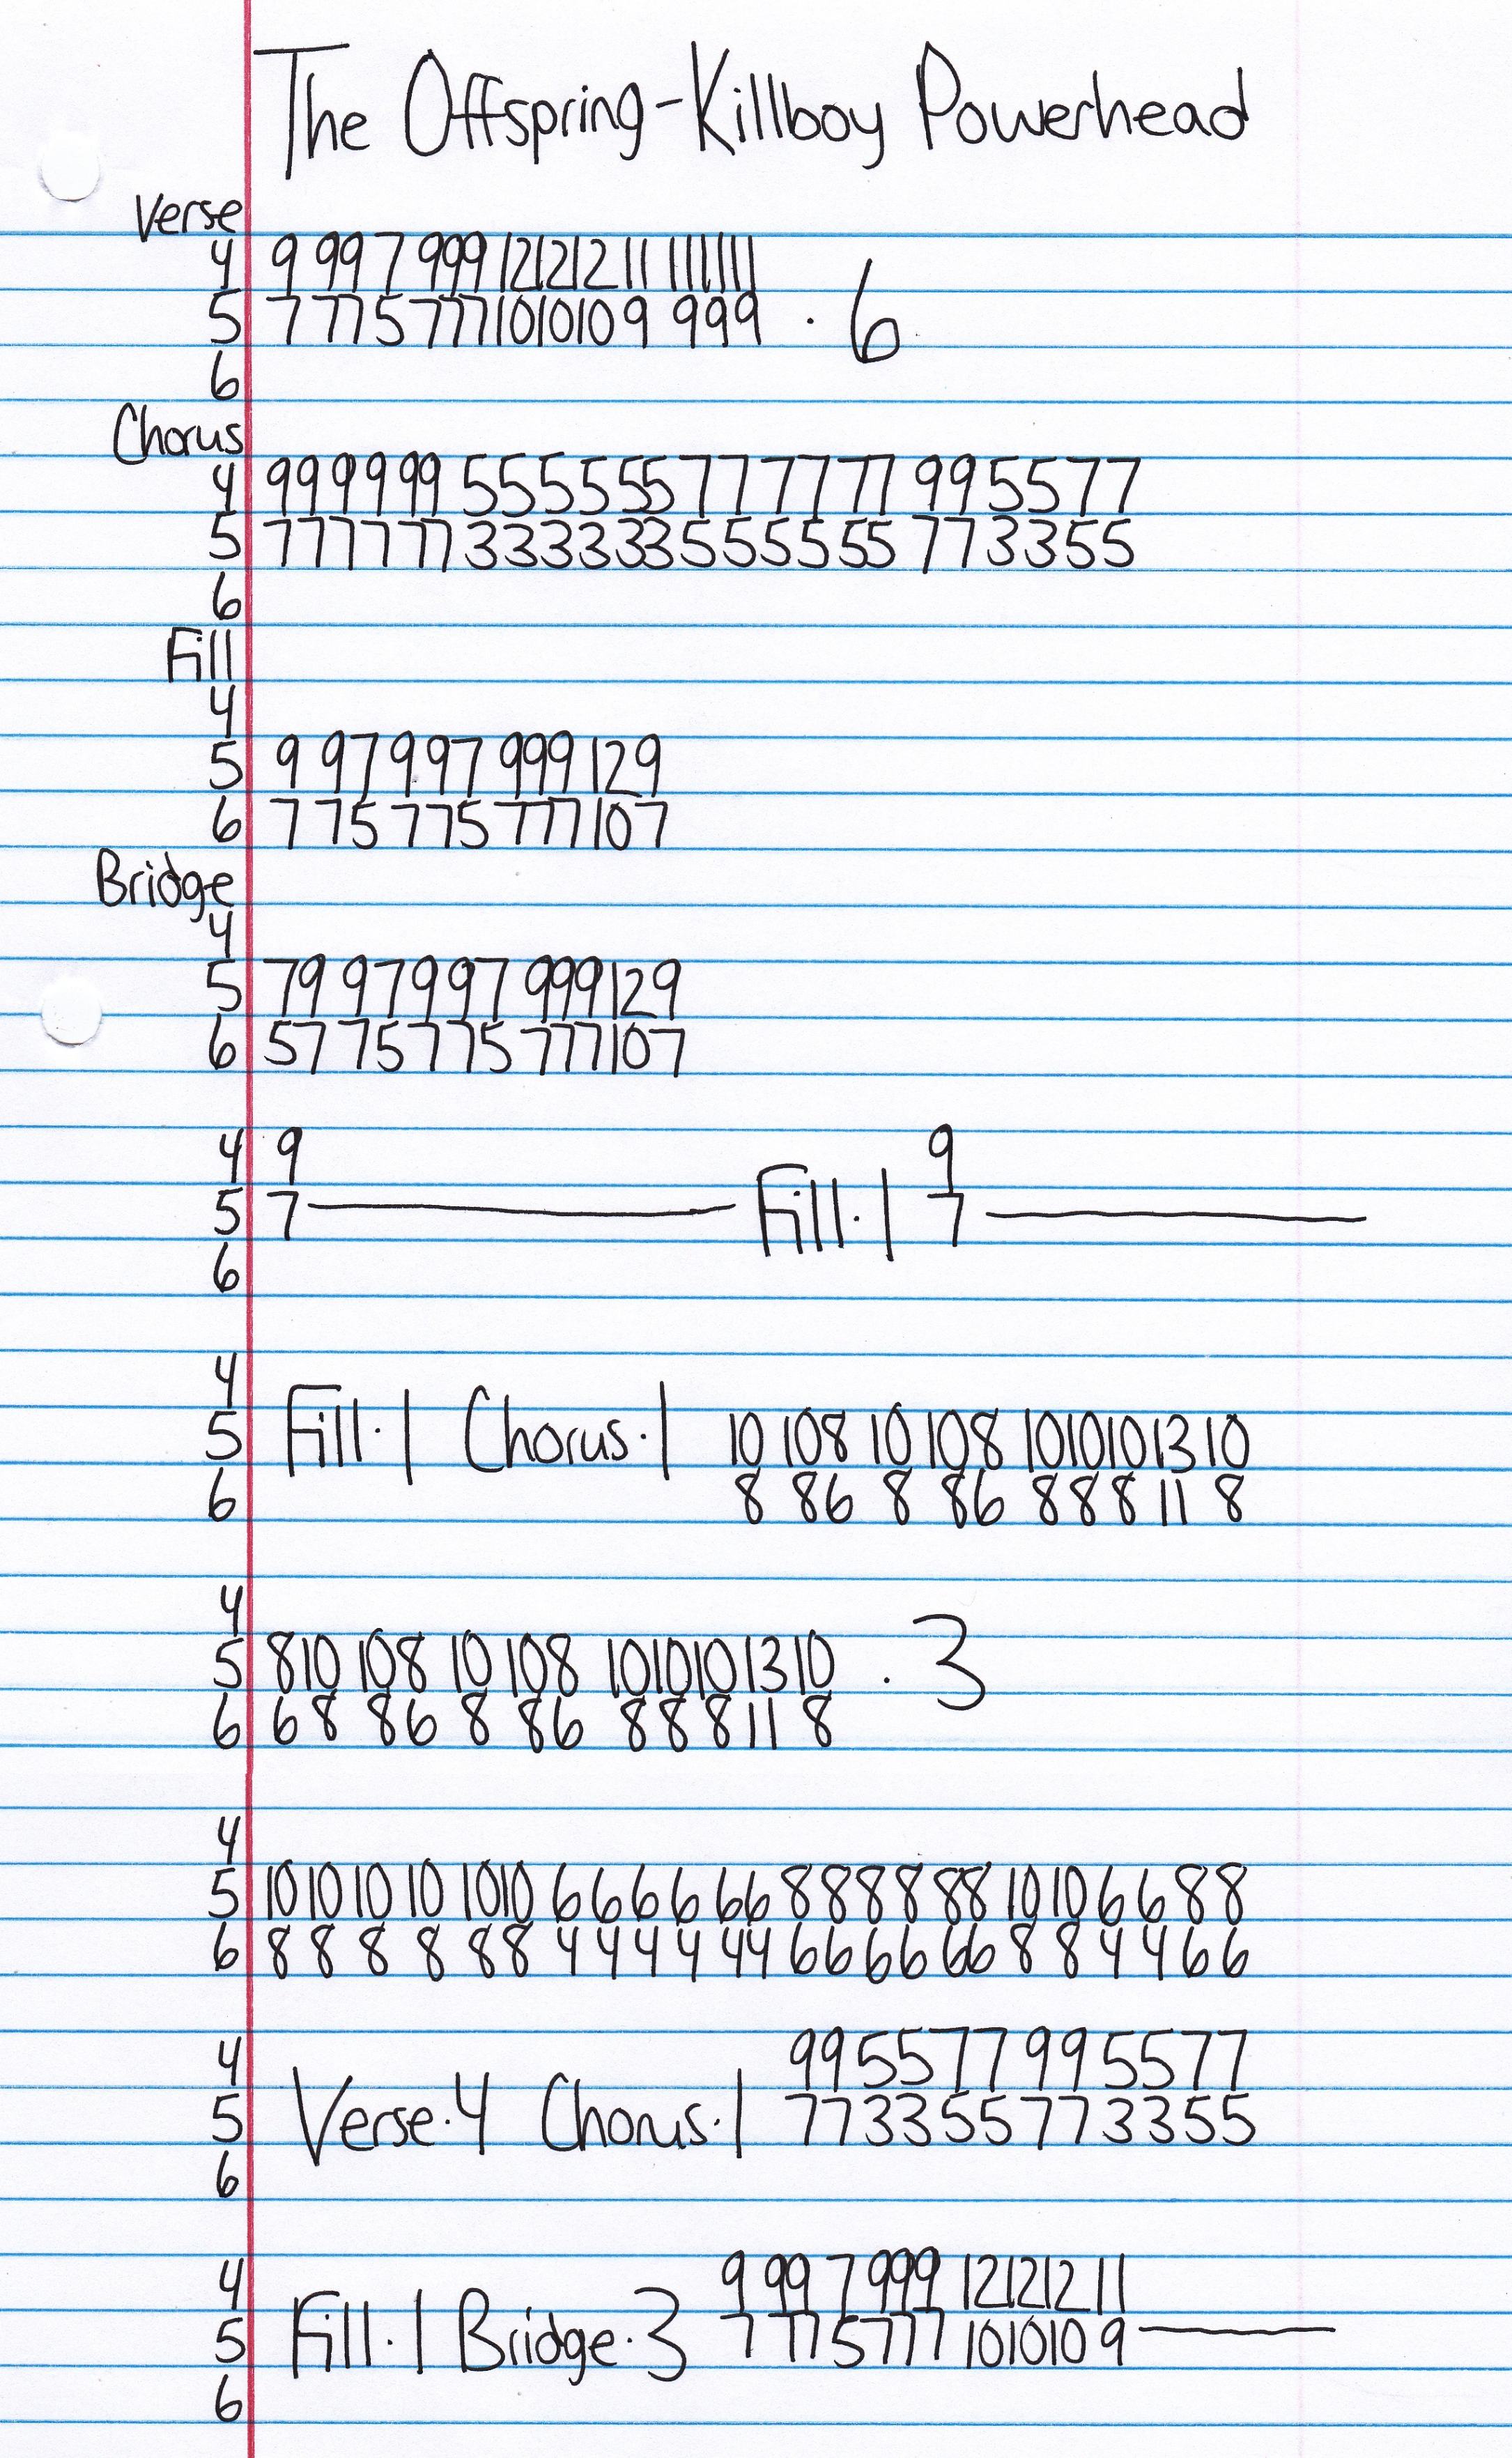 The Offspring-Killboy Powerhead
Verse
4 9 99 7 999 121212 11 111111
5 7 77 5 777 101010 9 999 · 6
6
Chorus
4 999999 555555 777777 995577
5 777777 333333 555555 773355
6
Fill
4
5 9 97 9 97 999 12 9
6 7 75 7 75 777 10 7
Bridge
4
5 79 97 9 97 999 12 9
6 57 75 7 75 777 10 7
4 9 9
5 7 Fill·1 7
6
4
5 Fill·1 Chorus·1 10 108 10 108 101010 13 10
6 8 86 8 86 888 11 8
4
5 810 108 10 108 101010 13 10 · 3
6 68 86 8 86 888 11 8
4
5 10 10 10 10 1010 6 6 6 6 66 8 8 8 8 88 10 10 6 6 8 8
6 8 8 8 8 88 4 4 4 4 44 6 6 6 6 66 8 8 4 4 6 6
4 995577 995577
5 Verse·4 Chorus·1 773355 773355
6
4 9 99 7 999 121212 11
5 Fill·1 Bridge·3 7 77 5 777 101010 9
6